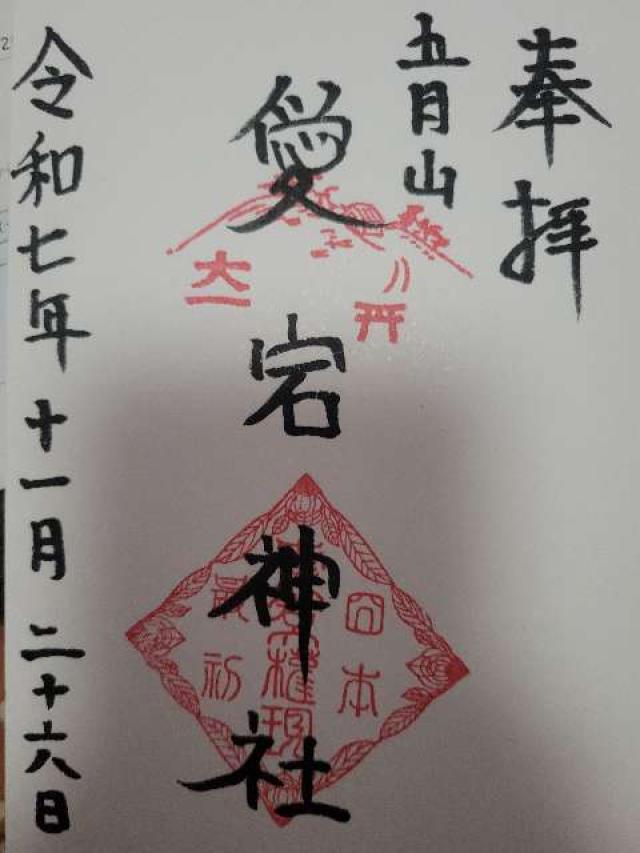 奉拝
五月山
愛宕神社
大一
開
日本
愛宕権現
最初
令和七年十一月二十六日